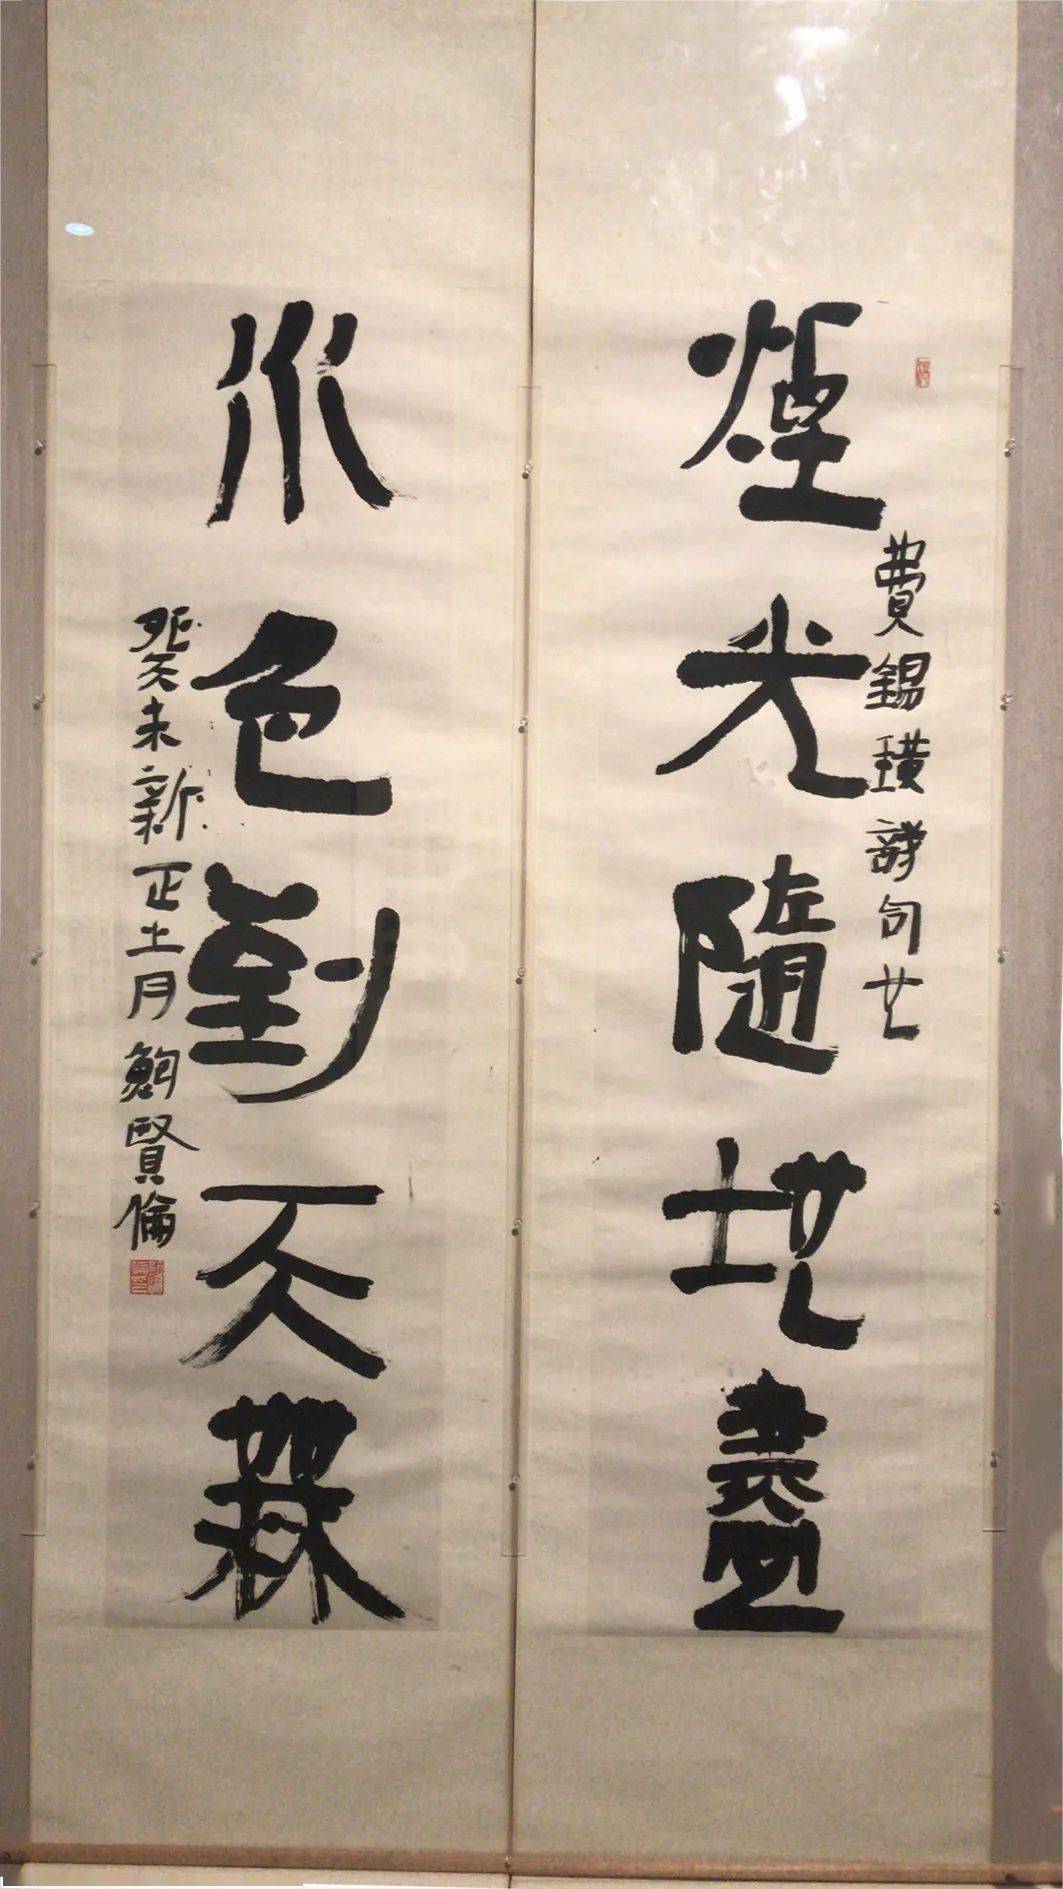 煙光隨地盡
費錫璜詩句也
水色到天無
癸未新正土月鮑賢倫